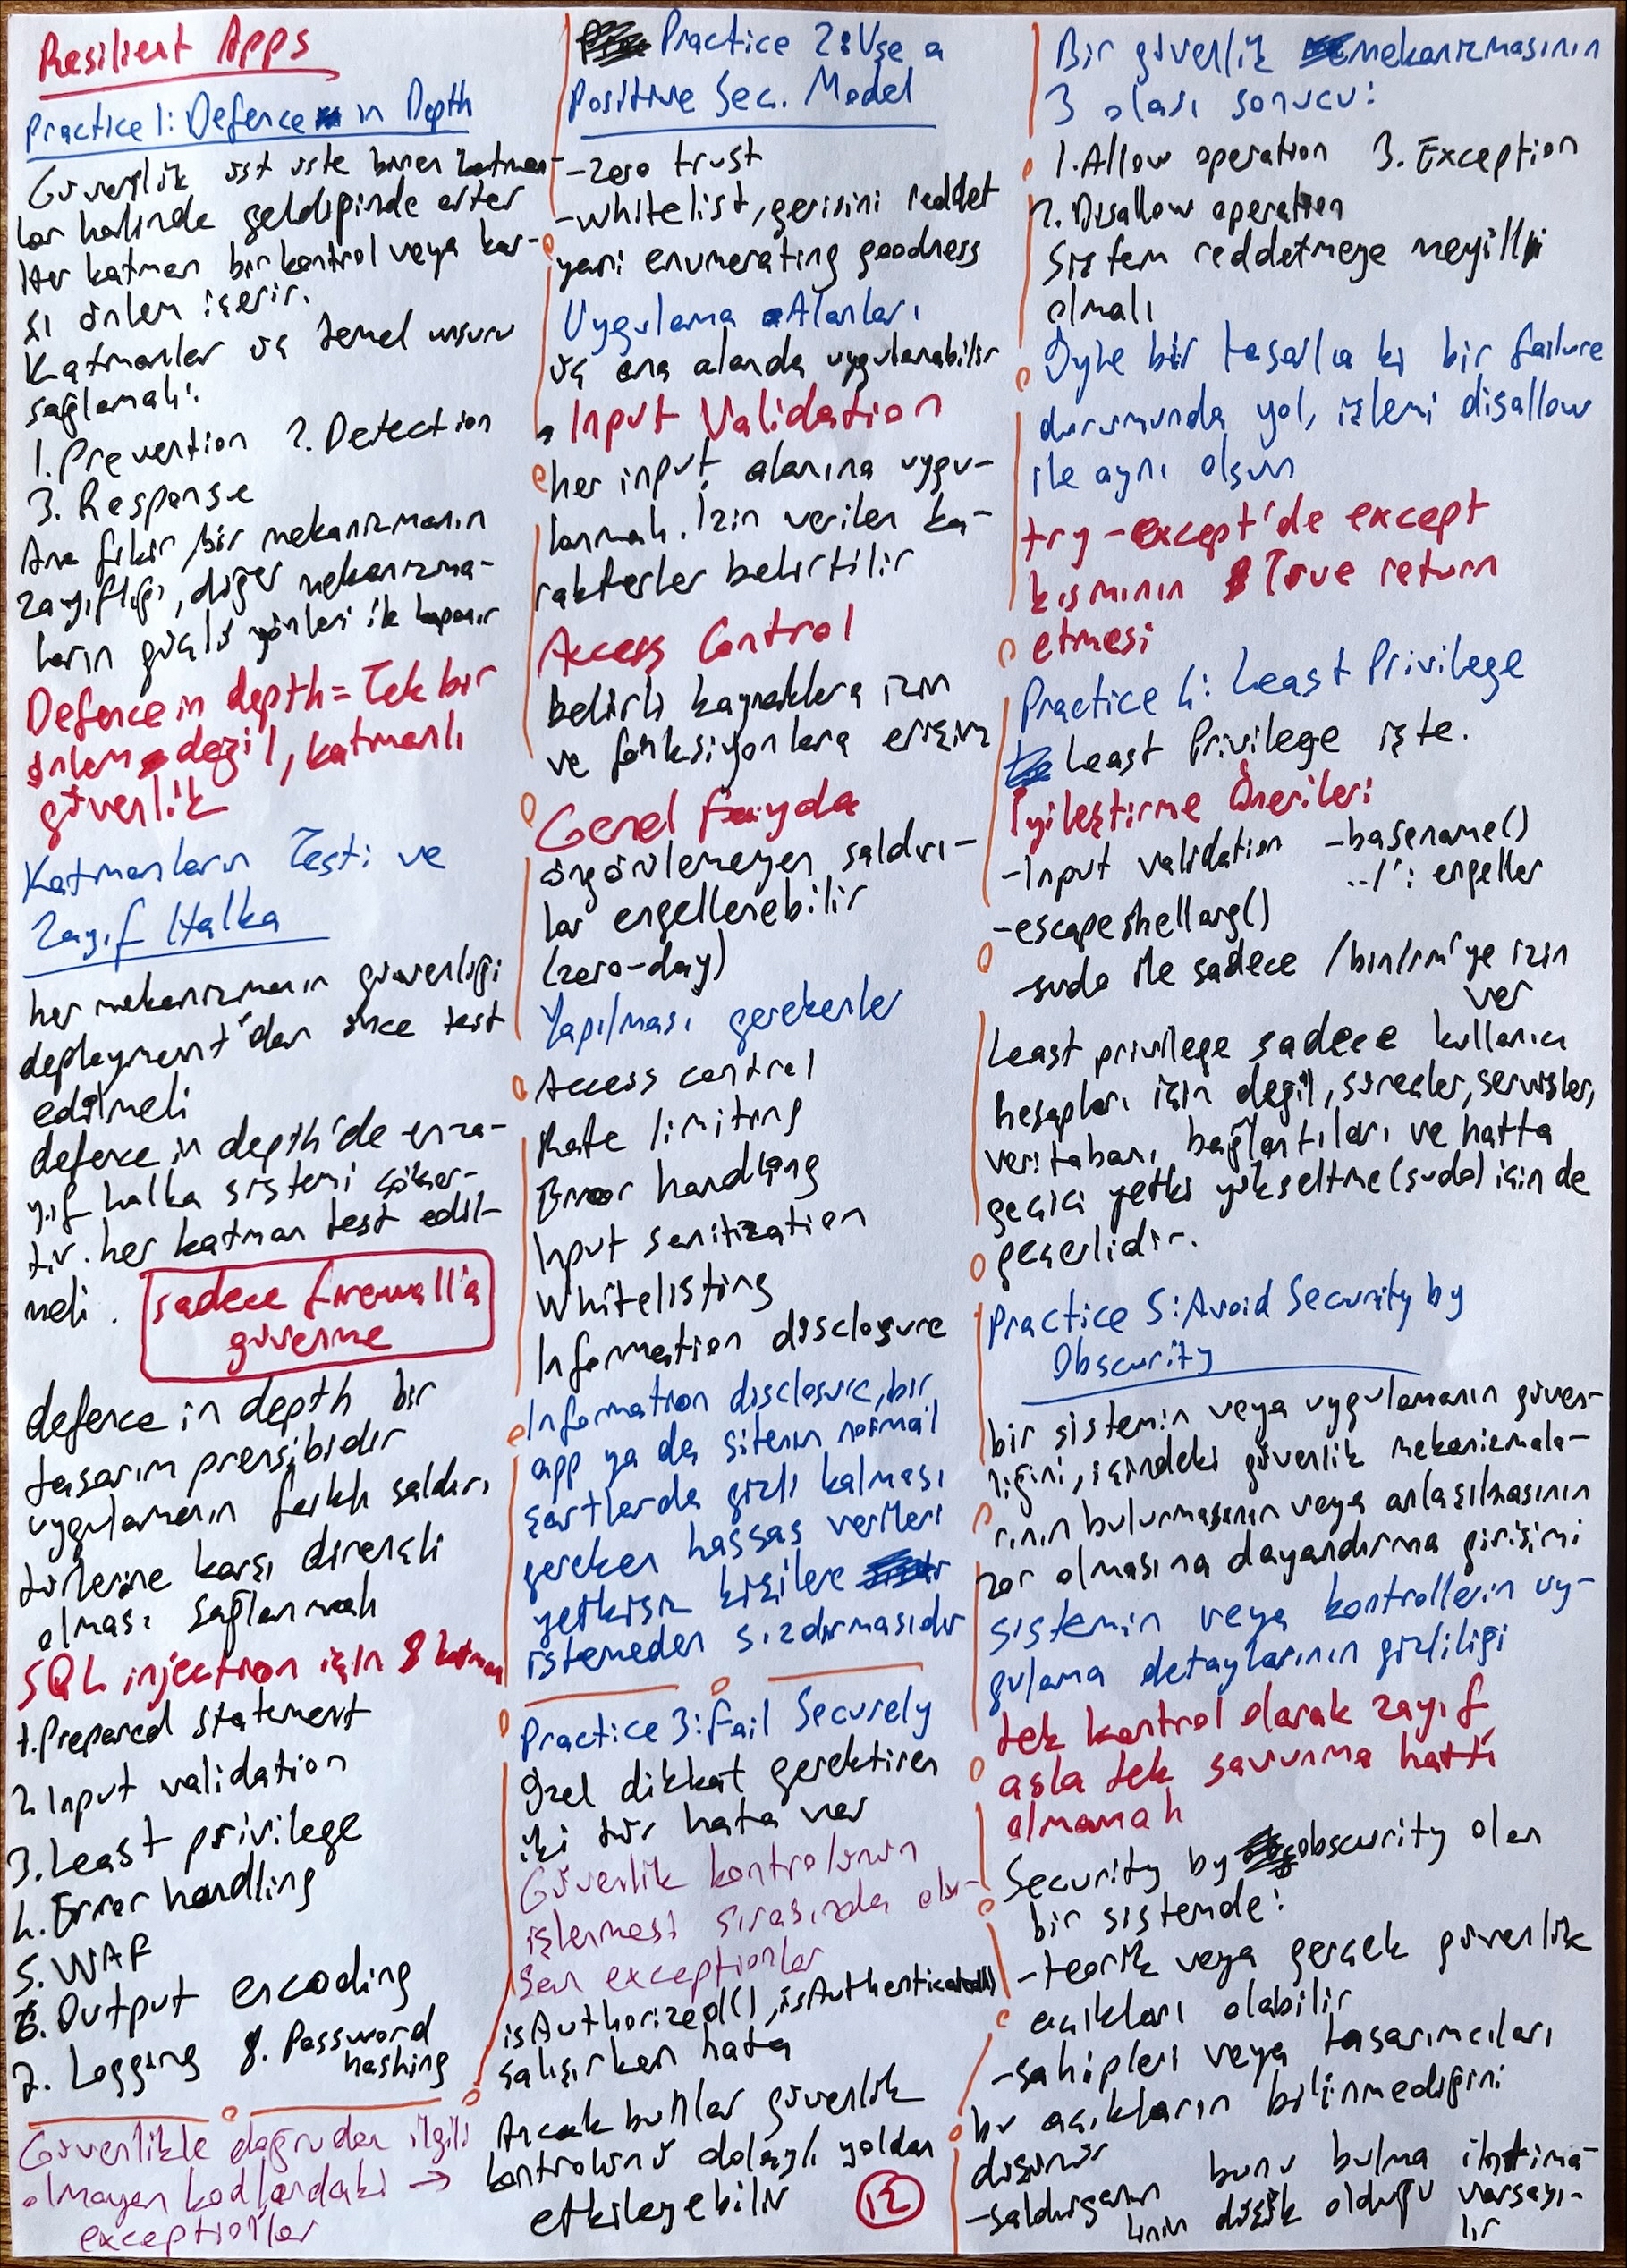 Resilient Apps
Practice 1: Defence in Depth
Güvenlik üst üste binen katman-
lar halinde geldiğinde artar
Her katman bir kontrol veya kar-
şı önlem içerir.
Katmanlar üç temel unsuru
sağlamalı:
1. Prevention 2. Detection
3. Response
Ana fikir, bir mekanizmanın
zayıflığı, diğer mekanizma-
ların güçlü yönleri ile kapanır
Defence in depth = Tek bir
önlem değil, katmanlı
güvenlik
Katmanların Testi ve
Zayıf Halka
her mekanizmanın güvenliği
deployment'dan önce test
edilmeli
defence in depth'de en za-
yıf halka sistemi çöker-
tir. her katman test edil-
meli.
sadece firewall'a
güvenme
defence in depth bir
tasarım prensibidir
uygulamanın farklı saldırı
türlerine karşı dirençli
olması sağlanmalı
SQL injection için 8 katman
1. Prepared statement
2. Input validation
3. Least privilege
4. Error handling
5. WAF
6. Output encoding
7. Logging 8. Password
hashing
Güvenlikle doğrudan ilgili
olmayan kodlardaki →
exceptionlar
Practice 2: Use a
Positive Sec. Model
-zero trust
-whitelist, gerisini reddet
yani enumerating goodness
Uygulama Alanları
üç ana alanda uygulanabilir
Input Validation
her input alanına uygu-
lanmalı. İzin verilen ka-
rakterler belirtilir
Access Control
belirli kaynaklara izin
ve fonksiyonlara erişim
Genel Fayda
öngörülemeyen saldırı-
lar engellenebilir
(zero-day)
Yapılması gerekenler
Access control
Rate limiting
Error handling
Input sanitization
Whitelisting
Information disclosure
Information disclosure, bir
app ya da sitenin normal
şartlarda gizli kalması
gereken hassas verileri
yetkisiz kişilere
istemeden sızdırmasıdır
Practice 3: Fail Securely
Özel dikkat gerektiren
iki tür hata var
Güvenlik kontrolünün
işlenmesi sırasında olu-
şan exceptionlar
isAuthorized(), isAuthenticated()
çalışırken hata
Ancak bunlar güvenlik
kontrolünü dolaylı yoldan
etkileyebilir
12
Bir güvenlik mekanizmasının
3 olası sonucu:
1. Allow operation 3. Exception
2. Disallow operation
Sistem reddetmeye meyilli
olmalı
Öyle bir tasarla ki bir failure
durumunda yol, işlemi disallow
ile aynı olsun
try-except'de except
kısmının True return
etmesi
Practice 4: Least Privilege
Least Privilege işte.
İyileştirme Önerileri
-Input validation -basename()
../': engeller
-escapeshellarg()
-sudo ile sadece /bin/rm'ye izin
ver
Least privilege sadece kullanıcı
hesapları için değil, süreçler, servisler,
veritabanı, bağlantıları ve hatta
geçici yetki yükseltme (sudo) için de
geçerlidir.
Practice 5: Avoid Security by
Obscurity
bir sistemin veya uygulamanın güven-
liğini, içindeki güvenlik mekanizmala-
rının bulunmasının veya anlaşılmasının
zor olmasına dayandırma girişimi
sistemin veya kontrollerin uy-
gulama detaylarının gizliliği
tek kontrol olarak zayıf
asla tek savunma hattı
olmamalı
Security by obscurity olan
bir sistemde:
-teorik veya gerçek güvenlik
açıkları olabilir
-sahipleri veya tasarımcıları
bu açıkların bilinmediğini
düşünür
-saldırganın bunu bulma ihtima-
linin düşük olduğu varsayı-
lır